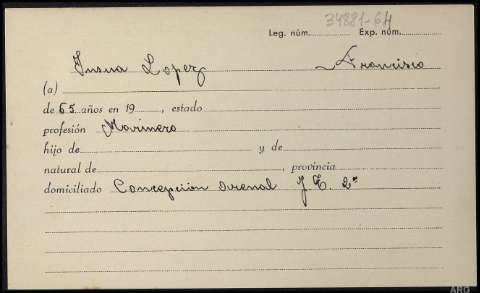 34881-64
Leg. núm. Exp. núm.
Insua Lopez Francisco
(a)
de 65 años en 19 , estado
profesión Marinero
hijo de y de
natural de , provincia
domiciliado Concepción Arenal 2º
ARG